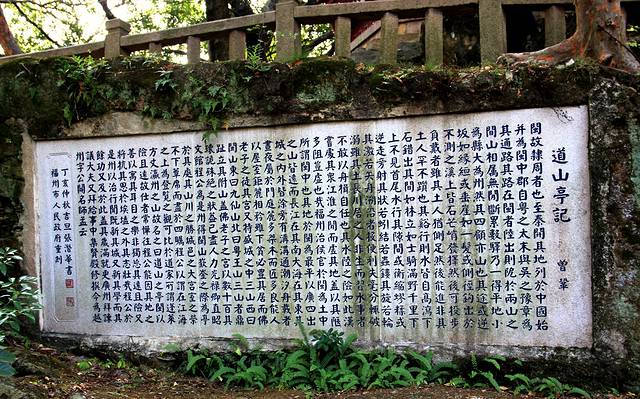 道山亭記
曾鞏
閩故隸周者也至秦開其地列於中國始
并為閩中郡自粵之太末與吳之豫章為
其通路其路在閩者陸出則阸於兩山之
間山相屬無間斷累數驛乃一得平地小
為縣大為州然其四顧亦山也其途或逆
坂如緣絙或垂崖如一髮或側徑鉤出於
不測之谿上皆石芒峭發擇然後可投步
負戴者雖其土人猶側足然後能進非其
土人罕不躓也其谿行則水皆自高瀉下
石錯出其間如林立如士騎滿野千里下
上不見首尾水行其隙間或衡縮蟉糅或
逆走旁射其狀若蚓結若蟲鏤其旋若輪
其激若矢舟泝沿者投便利失毫分輒破
溺雖其土長川居之人非生而習水事者
不敢以舟楫自任也其水陸之險如此漢
嘗處其眾江淮之間而虛其地蓋以其陿
多阻豈虛也哉福州治侯官於閩為土中
所謂閩中也其地於閩為最平以廣四出
之山皆遠而長江在其南大海在其東其
城之內外皆塗旁有溝溝通潮汐舟載者
晝夜屬於門庭麓多桀木而匠多良能人
以屋室鉅麗相矜雖下貧必豐其居而佛
老子之徒其宮又特盛城之中三山西曰
閩山東曰九仙山北曰粵王山三山者鼎
趾立其附山蓋佛老子之宮以數十百其
瓌詭殊絕之狀蓋已盡人力光祿卿直昭
文館程公為是州得閩山嶔崟之際為亭
於其處其山川之勝城邑之大宮室之榮
不下簟席而盡於四矚程公以謂在江海
之上為登覽之觀可比於道家所謂蓬萊
方丈瀛州之山故名之曰道山之亭閩以
險且遠故仕者常憚往程公能因其地之
善以寓其耳目之樂非獨忘其遠且險又
將抗其思於埃壒之外其志壯哉程公於
是州以治行聞既新其城又新其學而其
餘功又及於此蓋其歲滿就更廣州拜諫
議大夫又拜給事中集賢殿修撰今為越
州字公闢名師孟云
丁亥仲秋吉旦張善華書
福州市人民政府重刻